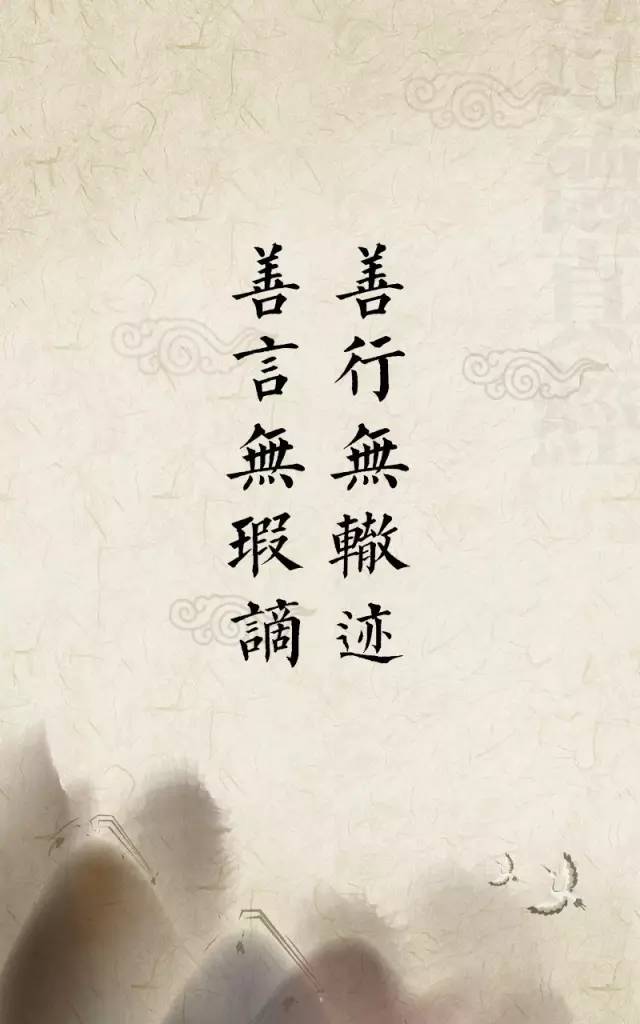 善行無轍迹
善言無瑕謫